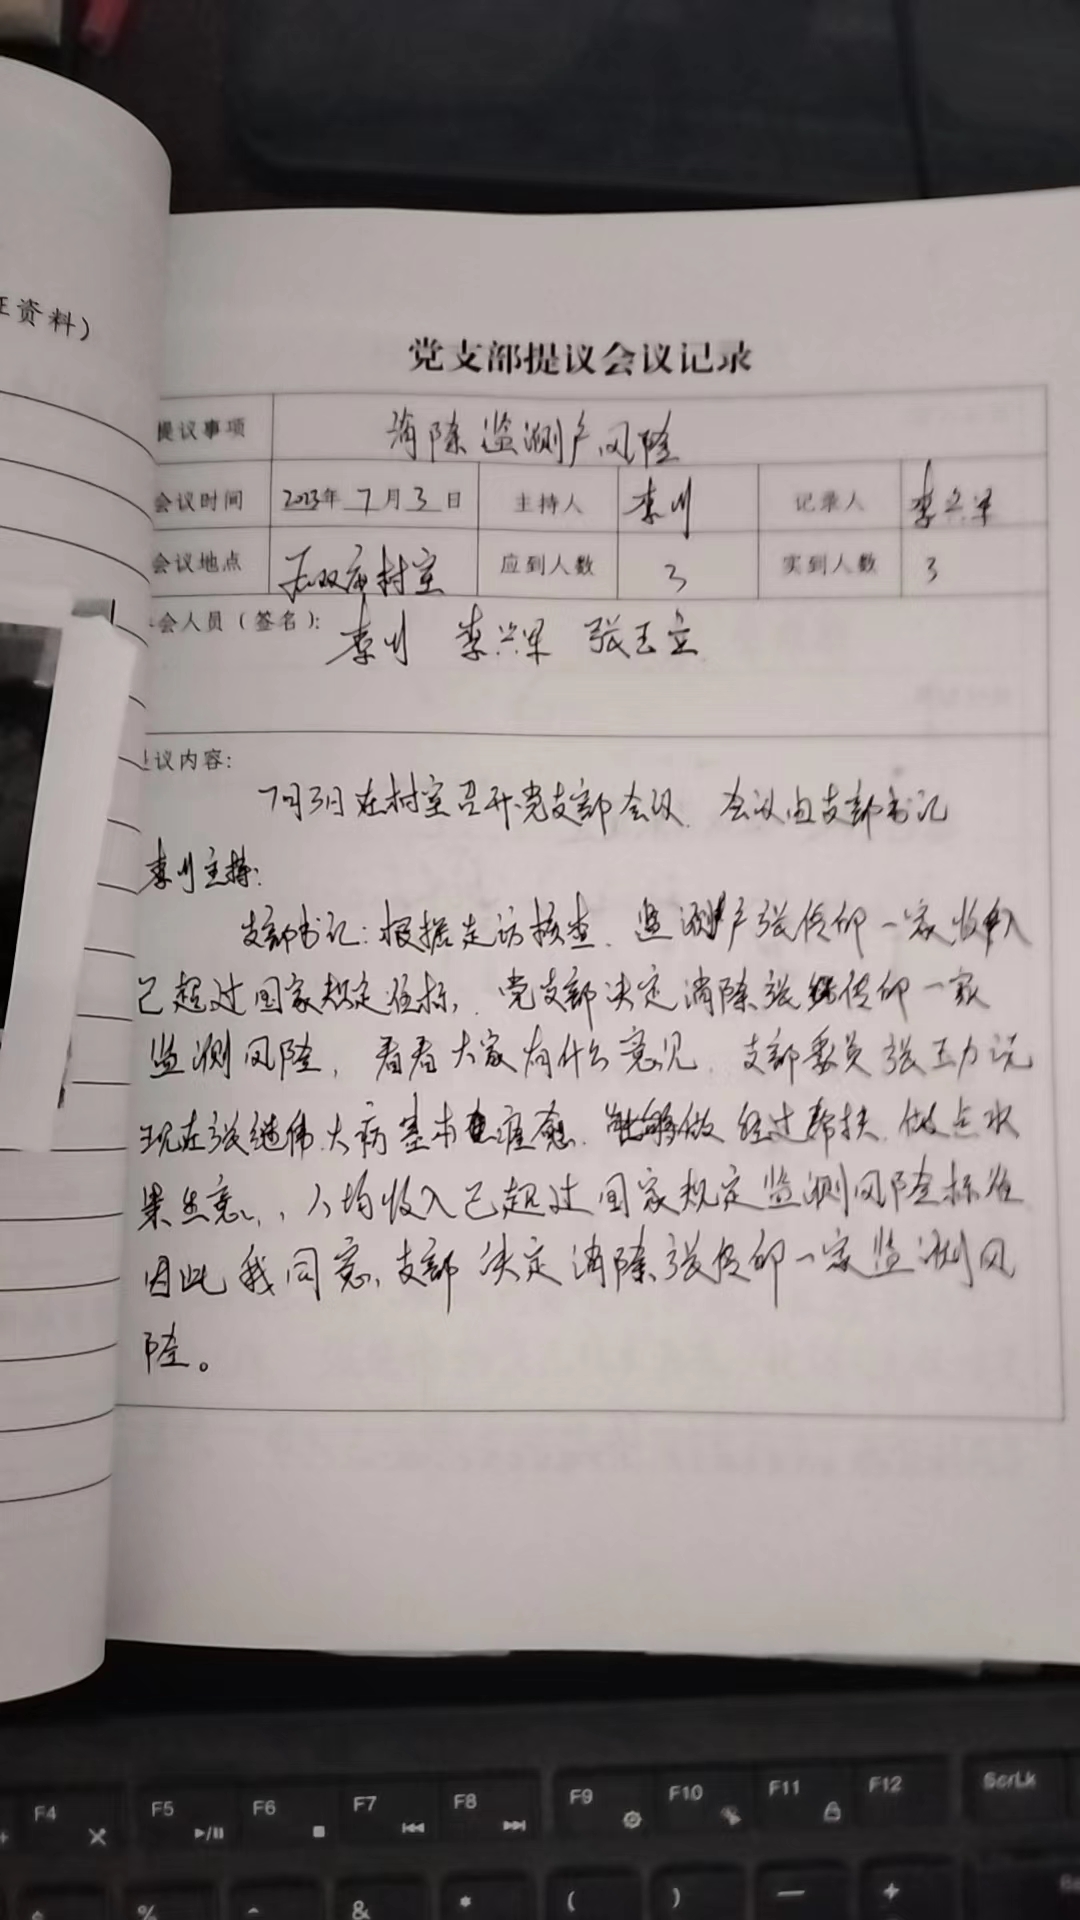 资料）
党支部提议会议记录
提议事项 消除监测户风险
会议时间 2023年7月3日 主持人 李川 记录人 李兴军
会议地点 双庙村室 应到人数 3 实到人数 3
会人员（签名）： 李川 李兴军 张玉立
议内容：
7月3日在村室召开党支部会议，会议由支部书记
李川主持：
支部书记：根据走访核查，监测户张传仰一家收入
已超过国家规定准标，党支部决定消除张传仰一家
监测风险，看看大家有什么意见，支部委员张玉力说
现在张继伟大病基本痊愈，经过帮扶，做点水
果生意，人均收入已超过国家规定监测风险标准
因此我同意，支部决定消除张传仰一家监测风
险。
F4 F5 F6 F7 F8 F9 F10 F11 F12 ScrLk
% ^ & * ( ) — +